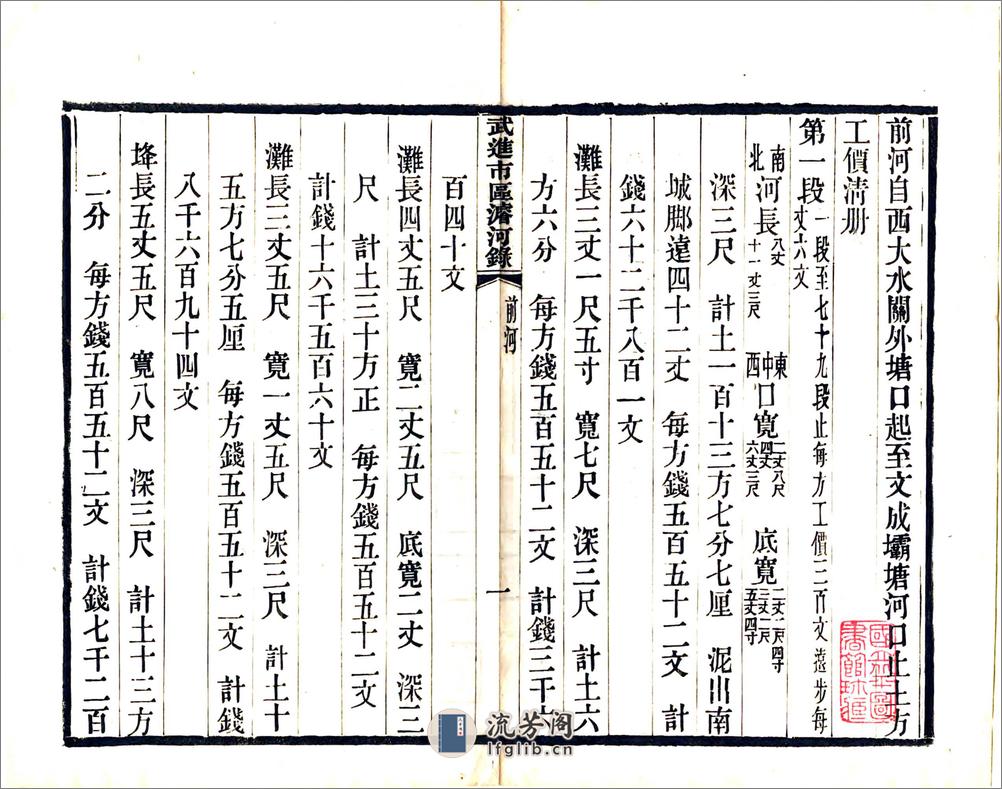 前河自西大水關外塘口起至文成壩塘河口止土方
工價清册
第一段 一段至七十九段止每方工價三百文遠步每
丈六文
南北河長 八丈 十一丈三尺 東中西口寬 二丈八尺 四丈 六丈三尺 底寬 二丈二尺四寸 三丈二尺 五丈四寸
深三尺 計土一百十三方七分七厘 泥出南
城脚遠四十二丈 每方錢五百五十二文 計
錢六十二千八百一文
灘長三丈一尺五寸 寬七尺 深三尺 計土六
方六分 每方錢五百五十二文 計錢三千六
武進市區濬河錄 前河 一
百四十文
灘長四丈五尺 寬二丈五尺 底寬二丈 深三
尺 計土三十方正 每方錢五百五十二文
計錢十六千五百六十文
灘長三丈五尺 寬一丈五尺 深三尺 計土十
五方七分五厘 每方錢五百五十二文 計錢
八千六百九十四文
埄長五丈五尺 寬八尺 深三尺 計土十三方
二分 每方錢五百五十二文 計錢七千二百
流芳阁
lfglib.cn